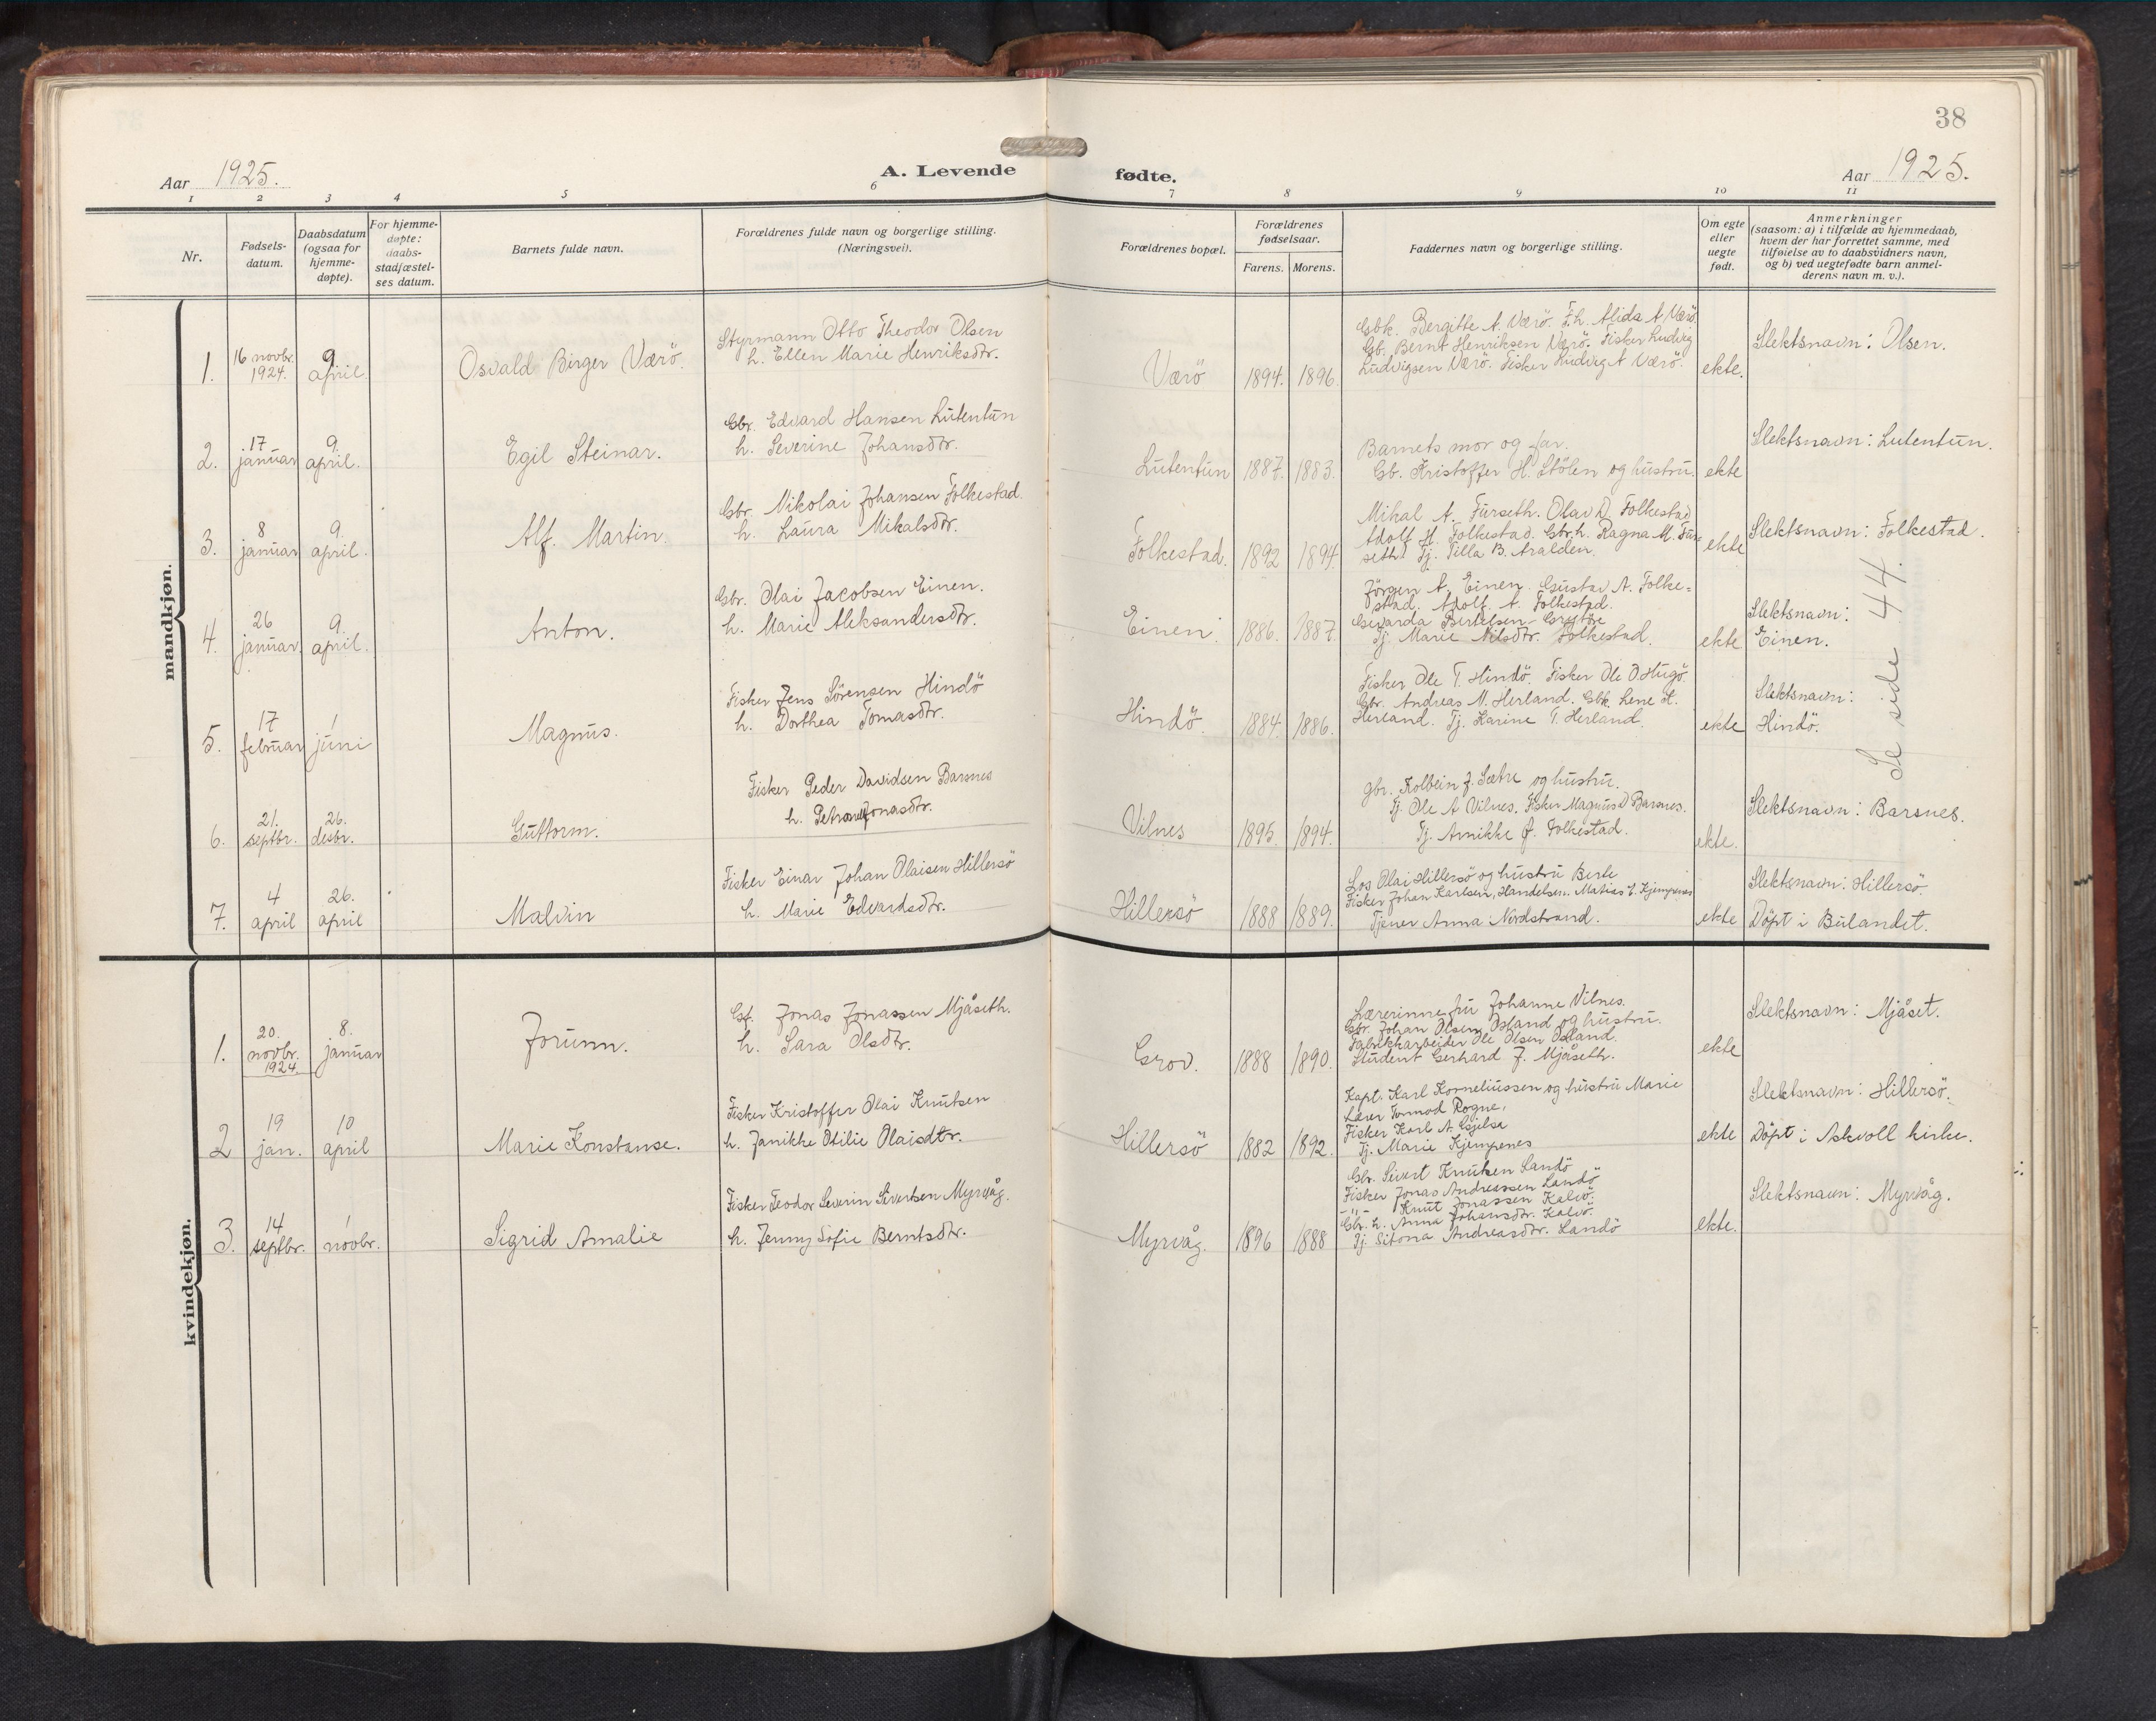 38
Aar 1925.
A. Levende fødte.
Aar 1925.
1 2 3 4 5 6 7 8 9 10 11
Nr.
Fødsels-
datum.
Daabsdatum
(ogsaa for
hjemme-
døpte).
For hjemme-
døpte:
daabs-
stadfæstel-
ses datum.
Barnets fulde navn.
Forældrenes fulde navn og borgerlige stilling.
(Næringsvei).
Forældrenes bopæl.
Forældrenes
fødselsaar.
Farens. Morens.
Faddernes navn og borgerlige stilling.
Om egte
eller
uegte
født.
Anmerkninger
(saasom: a) i tilfælde av hjemmedaab,
hvem der har forrettet samme, med
tilføielse av to daabsvidners navn,
og b) ved uegtefødte barn anmel-
derens navn m. v.).
mandkjøn.
1.
16 novbr.
1924.
9.
april.
Osvald Birger Værö.
Styrmann Otto Theodor Olsen
h. Ellen Marie Henriksdtr.
Værö
1894. 1896.
Gbk. Bergitte A. Værö. F.h. Alida A. Værö.
Gb. Bernt Henriksen Værö. Fisker Ludvig
Ludvigsen Værö. Fisker Ludvig A Værö.
ekte.
Slektsnavn: Olsen.
2.
17
januar
9.
april.
Egil Steinar.
Gbr. Edvard Hansen Lutentun
h. Severine Johansdtr.
Lutentun
1887. 1883.
Barnets mor og far.
Gb. Kristoffer H. Stölen og hustru.
ekte
Slektsnavn: Lutentun.
3.
8
januar
9.
april.
Alf. Martin.
Gbr. Nikolai Johansen Folkestad.
h. Laura Mikalsdtr.
Folkestad.
1892 1894.
Mikal A. Furseth. Olav D. Folkestad
Adolf H. Folkestad. Gbr.h. Ragna M. Fur=
seth. Tj. Tilla B. Aralden.
ekte
Slektsnavn: Folkestad.
4.
26
januar.
9.
april.
Anton.
Gbr. Olai Jacobsen Einen.
h. Marie Aleksandersdtr.
Einen.
1886. 1887.
Jörgen A. Einen. Gustav A. Folke=
stad. Adolf. A. Folkestad.
Gevarda Bertelsen-
Tj. Marie Nilsdtr. Folkestad.
ekte
Slektsnavn:
Einen.
5.
17
februar
1
juni
Magnus.
Fisker Jens Sörensen Hindö
h. Dorthea Tomasdtr.
Hindö.
1884. 1886.
Fisker Ole T. Hindö. Fisker Ole O. Hugö.
Gbr. Andreas N. Herland. Gbk. Lene H.
Herland. Tj. Karine T. Herland.
ekte
Slektsnavn:
Hindö.
Se side 44.
6.
21.
septbr.
26.
desbr.
Guttorm.
Fisker Peder Davidsen Barsnes
h. Petrane Jonasdtr.
Vilnes
1895. 1894.
gbr. Kolbein J. Sætre og hustru.
Tj. Ole A Vilnes. Fisker Magnus D Barsnes.
Tj. Annikke J. Folkestad.
ekte.
Slektsnavn: Barsnes.
7.
4
april
26.
april
Malvin
Fisker Einar Johan Olaisen Hillersö
h. Marie Edvardsdtr.
Hillersö
1888 1889.
Los Olai Hillersö og hustru Berte
Fisker Johan Karlsen, Handelsm. Matias L. Kjempenes
Tjener Anna Nordstrand.
ekte
Slektsnavn: Hillersö.
Döpt i Bulandet.
kvindekjøn.
1.
20.
novbr.
1924.
8.
januar
Jorunn.
Gf. Jonas Jonassen Mjåseth.
h. Sara Olsdtr.
Grov.
1888 1890.
Lærerinne fru Johanne Vilnes.
Gbr. Johan Olsen Osland og hustru.
Fabrikkarbeider Ole Olsen Osland.
Student Gerhard J. Mjåseth.
ekte
Slektsnavn: Mjåset.
2
19
jan.
10
april
Marie Konstanse.
Fisker Kristoffer Olai Knutsen
h. Janikke Otilie Olaisdtr.
Hillersö
1882 1892.
Kapt. Karl Korneliussen og hustru Marie
Lærer Tormod Rogne,
Fisker Karl A. Gjelsa
Tj. Marie Kjempenes
ekte
Slektsnavn: Hillersö.
Döpt i Askvoll kirke.
3.
14
septbr.
1
novbr.
Sigrid Amalie
Fisker Teodor Severin Sivertsen Myrvåg.
h. Jenny Sofie Berntsdtr.
Myrvåg.
1896 1888
Gbr. Sivert Knutsen Landö
Fisker Jonas Andreassen Landö
-"- Knut Jonassen Kalvö.
Gbr. h. Anna Johansdtr. Kalvö.
Tj. Sitona Andreasdtr. Landö
ekte.
Slektsnavn: Myrvåg.